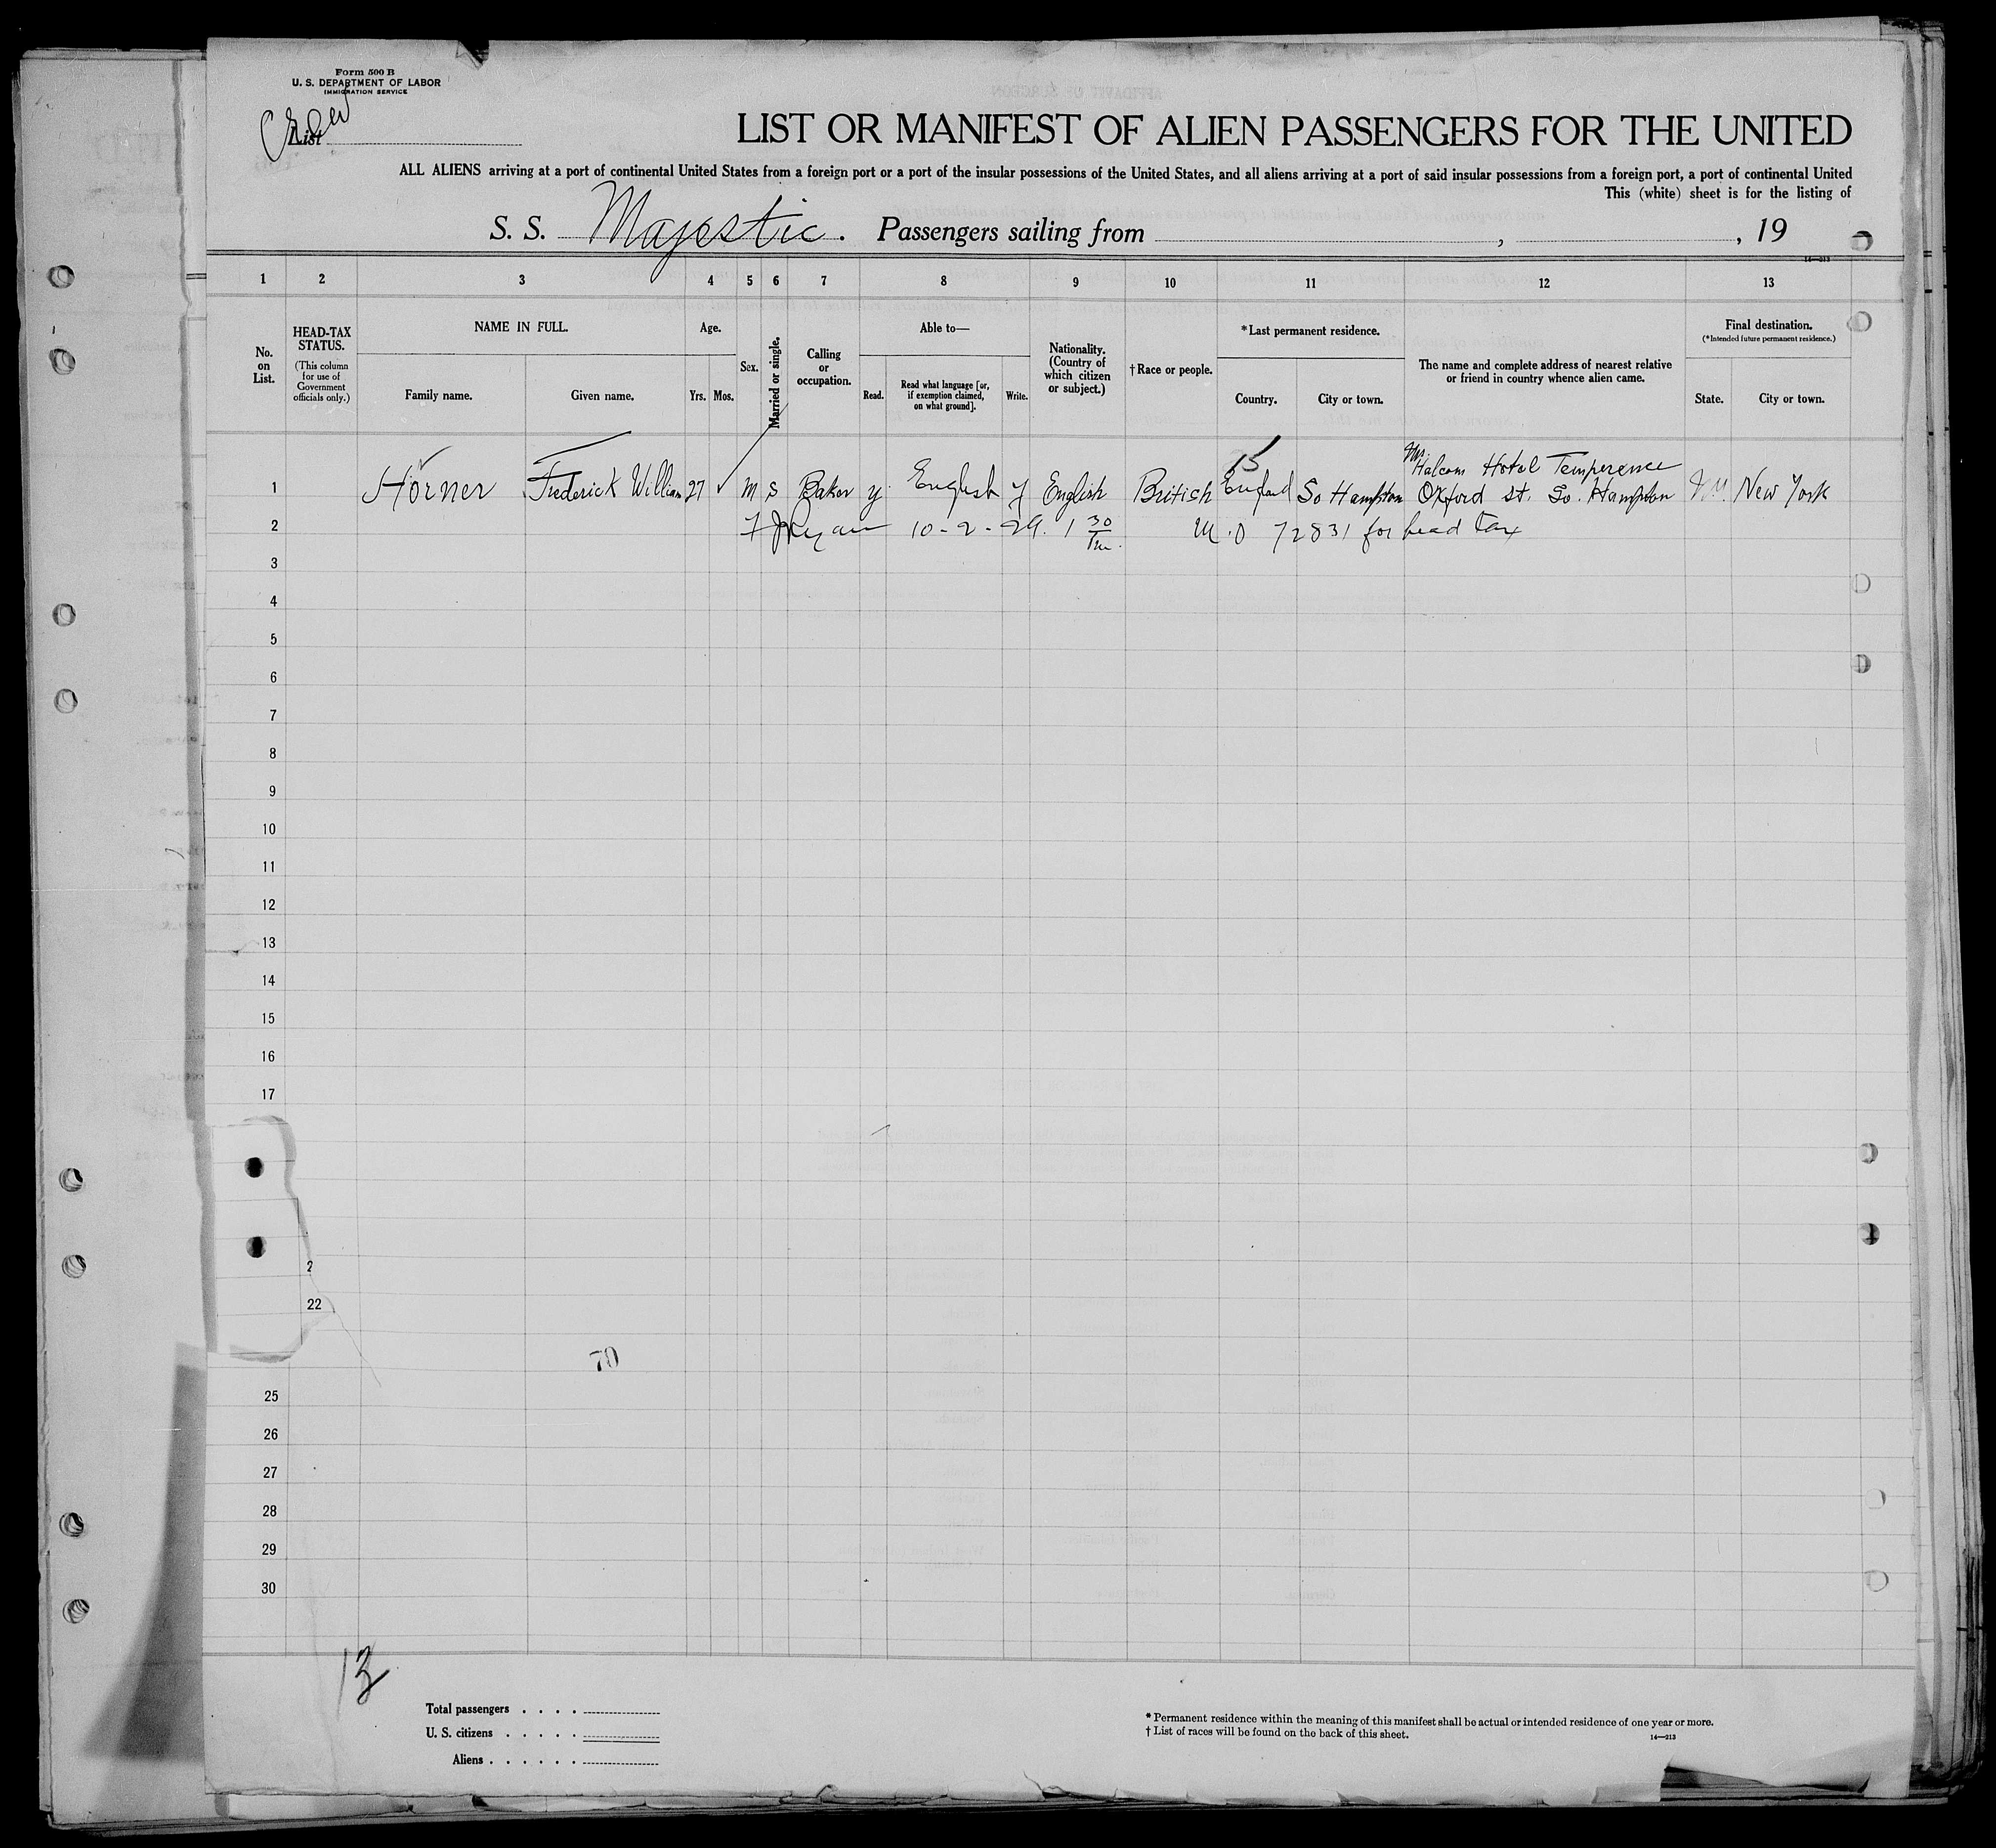 Form 500 B
U. S. DEPARTMENT OF LABOR
IMMIGRATION SERVICE
Crew
List
LIST OR MANIFEST OF ALIEN PASSENGERS FOR THE UNITED
ALL ALIENS arriving at a port of continental United States from a foreign port or a port of the insular possessions of the United States, and all aliens arriving at a port of said insular possessions from a foreign port, a port of continental United
This (white) sheet is for the listing of
S. S. Majestic. Passengers sailing from , , 19
14—213
1 2 3 4 5 6 7 8 9 10 11 12 13
No. on List.
HEAD-TAX STATUS.
(This column for use of Government officials only.)
NAME IN FULL.
Family name. Given name.
Age.
Yrs. Mos.
Sex.
Married or single.
Calling or occupation.
Able to—
Read. Read what language [or, if exemption claimed, on what ground]. Write.
Nationality. (Country of which citizen or subject.)
†Race or people.
*Last permanent residence.
Country. City or town.
The name and complete address of nearest relative or friend in country whence alien came.
Final destination.
(*Intended future permanent residence.)
State. City or town.
15
Mrs. Halcom Hotel Temperence
1 Horner Frederick William 27 M S Baker y English y English British England So Hampton Oxford St. So. Hampton N.Y. New York
2 F J Ryan 10-2-29. 1 30 Pm. M.O 72831 for head tax
3
4
5
6
7
8
9
10
11
12
13
14
15
16
17
2
22
70
25
26
27
28
29
30
13
Total passengers . . . .
U. S. citizens . . . . .
Aliens . . . . . .
* Permanent residence within the meaning of this manifest shall be actual or intended residence of one year or more.
† List of races will be found on the back of this sheet.
14—213